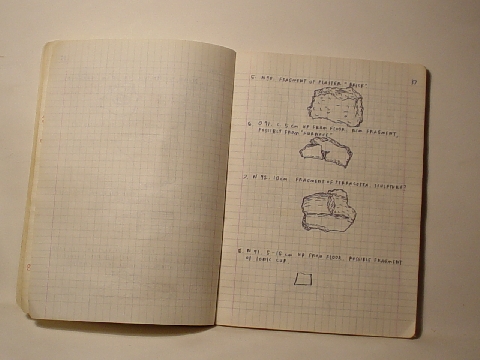 5. N 90. FRAGMENT OF PLASTER "BRICK"
6. O 91. C. 5 cm UP FROM FLOOR. RIM FRAGMENT,
POSSIBLY FROM
7. N 92. 10 cm. FRAGMENT OF TERRACOTTA. SCULPTURE?
8. N 91. 5-10 cm UP FROM FLOOR. POSSIBLE FRAGMENT
OF CUP